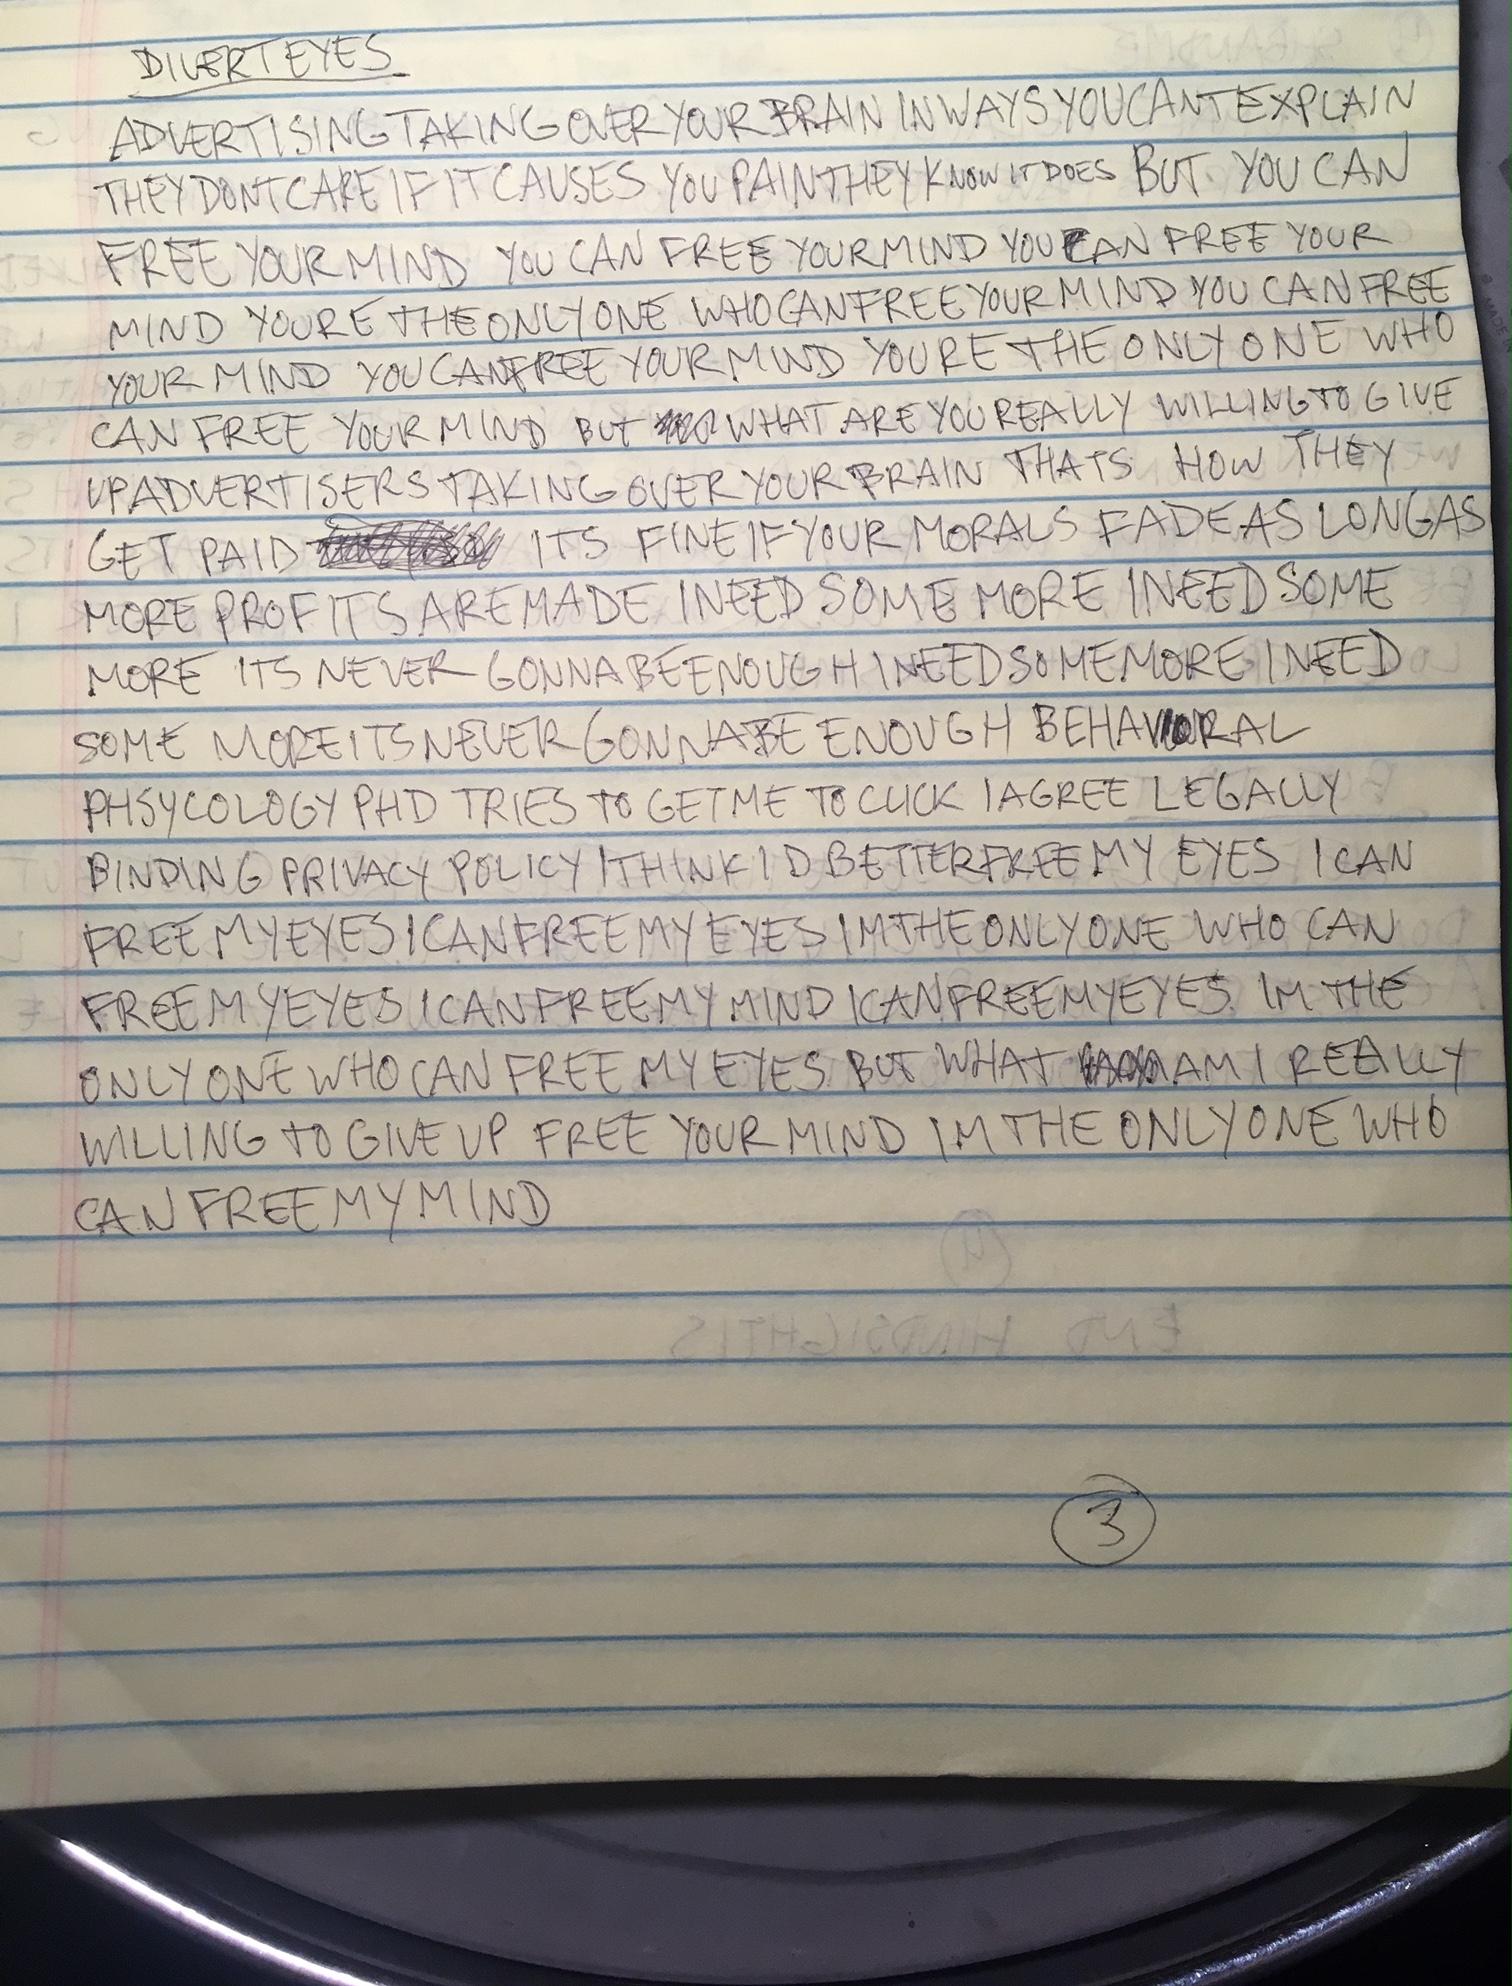 DIVERT EYES
ADVERTISING TAKING OVER YOUR BRAIN IN WAYS YOU CANT EXPLAIN
THEY DONT CARE IF IT CAUSES YOU PAIN THEY KNOW IT DOES BUT YOU CAN
FREE YOUR MIND YOU CAN FREE YOUR MIND YOU CAN FREE YOUR
MIND YOURE THE ONLY ONE WHO CAN FREE YOUR MIND YOU CAN FREE
YOUR MIND YOU CAN FREE YOUR MIND YOURE THE ONLY ONE WHO
CAN FREE YOUR MIND BUT WHAT ARE YOU REALLY WILLING TO GIVE
UP ADVERTISERS TAKING OVER YOUR BRAIN THATS HOW THEY
GET PAID ITS FINE IF YOUR MORALS FADE AS LONG AS
MORE PROFITS ARE MADE I NEED SOME MORE I NEED SOME
MORE ITS NEVER GONNA BE ENOUGH I NEED SOME MORE I NEED
SOME MORE ITS NEVER GONNA BE ENOUGH BEHAVIORAL
PHSYCOLOGY PHD TRIES TO GET ME TO CLICK I AGREE LEGALLY
BINDING PRIVACY POLICY I THINK ID BETTER FREE MY EYES I CAN
FREE MY EYES I CAN FREE MY EYES IM THE ONLY ONE WHO CAN
FREE MY EYES I CAN FREE MY MIND I CAN FREE MY EYES IM THE
ONLY ONE WHO CAN FREE MY EYES BUT WHAT AM I REALLY
WILLING TO GIVE UP FREE YOUR MIND IM THE ONLY ONE WHO
CAN FREE MY MIND
3